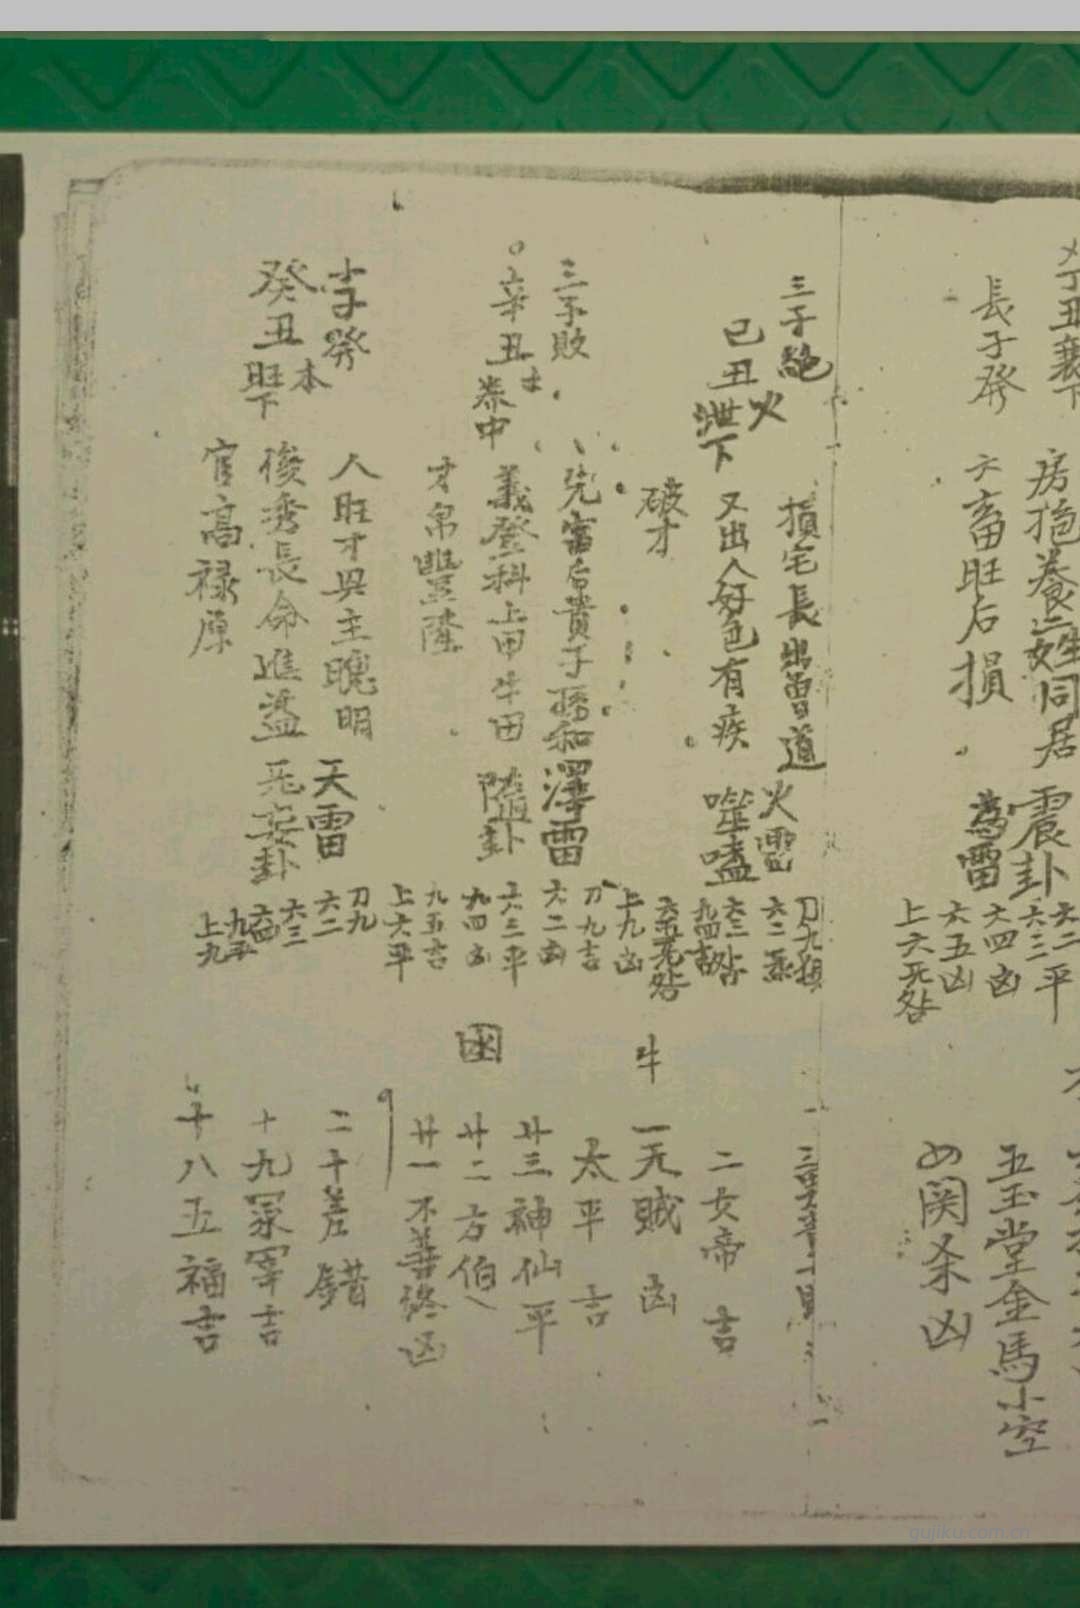 丁丑襄下
房抱養二姓同居
震卦
六二
長子發
六畜旺后損
為雷
六三平
六四凶
六五凶
上六死咎
五玉堂金馬小空
四関杀凶
三子絕
損宅長出曾道
火雷
己丑火泄下
又出人好色有疾
噬嗑
破才
六二
上九凶
二女帝 吉
牛
一天賊 凶
三子敗
先富后貴子孫和
澤雷
辛丑土
卷中
義登科上甲牛田
隨卦
才帛豐隆
刀九吉
六二凶
六三平
九四凶
九五吉
上六平
太平 吉
廿三神仙平
廿二方伯
廿一不善終凶
李發
人旺才興主聰明
天雷
癸丑本旺下
俊秀長命進益
无妄卦
官高禄原
刀九
六二
六三
六四
九五
上九
二十差錯
十九冢宰吉
十八五福吉
gujiku.com.cn